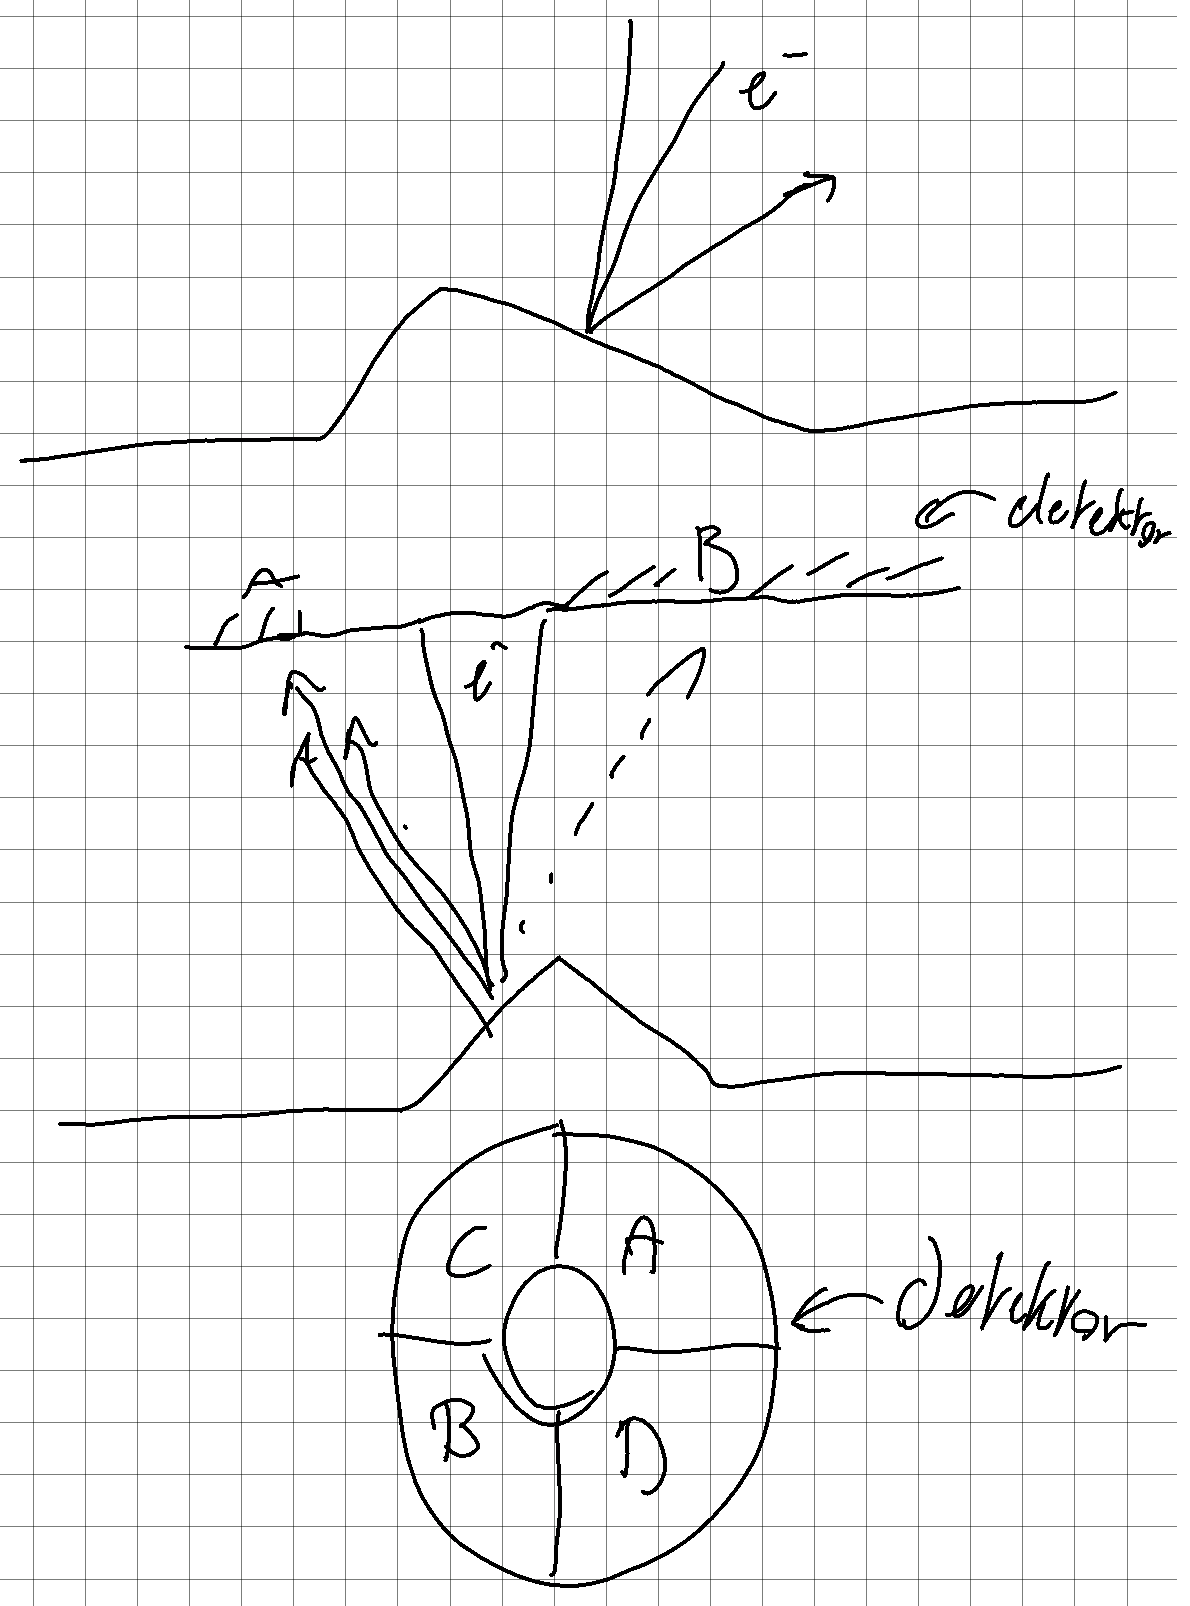 e⁻
detektor
A
B
e⁻
C
A
detektor
B
D